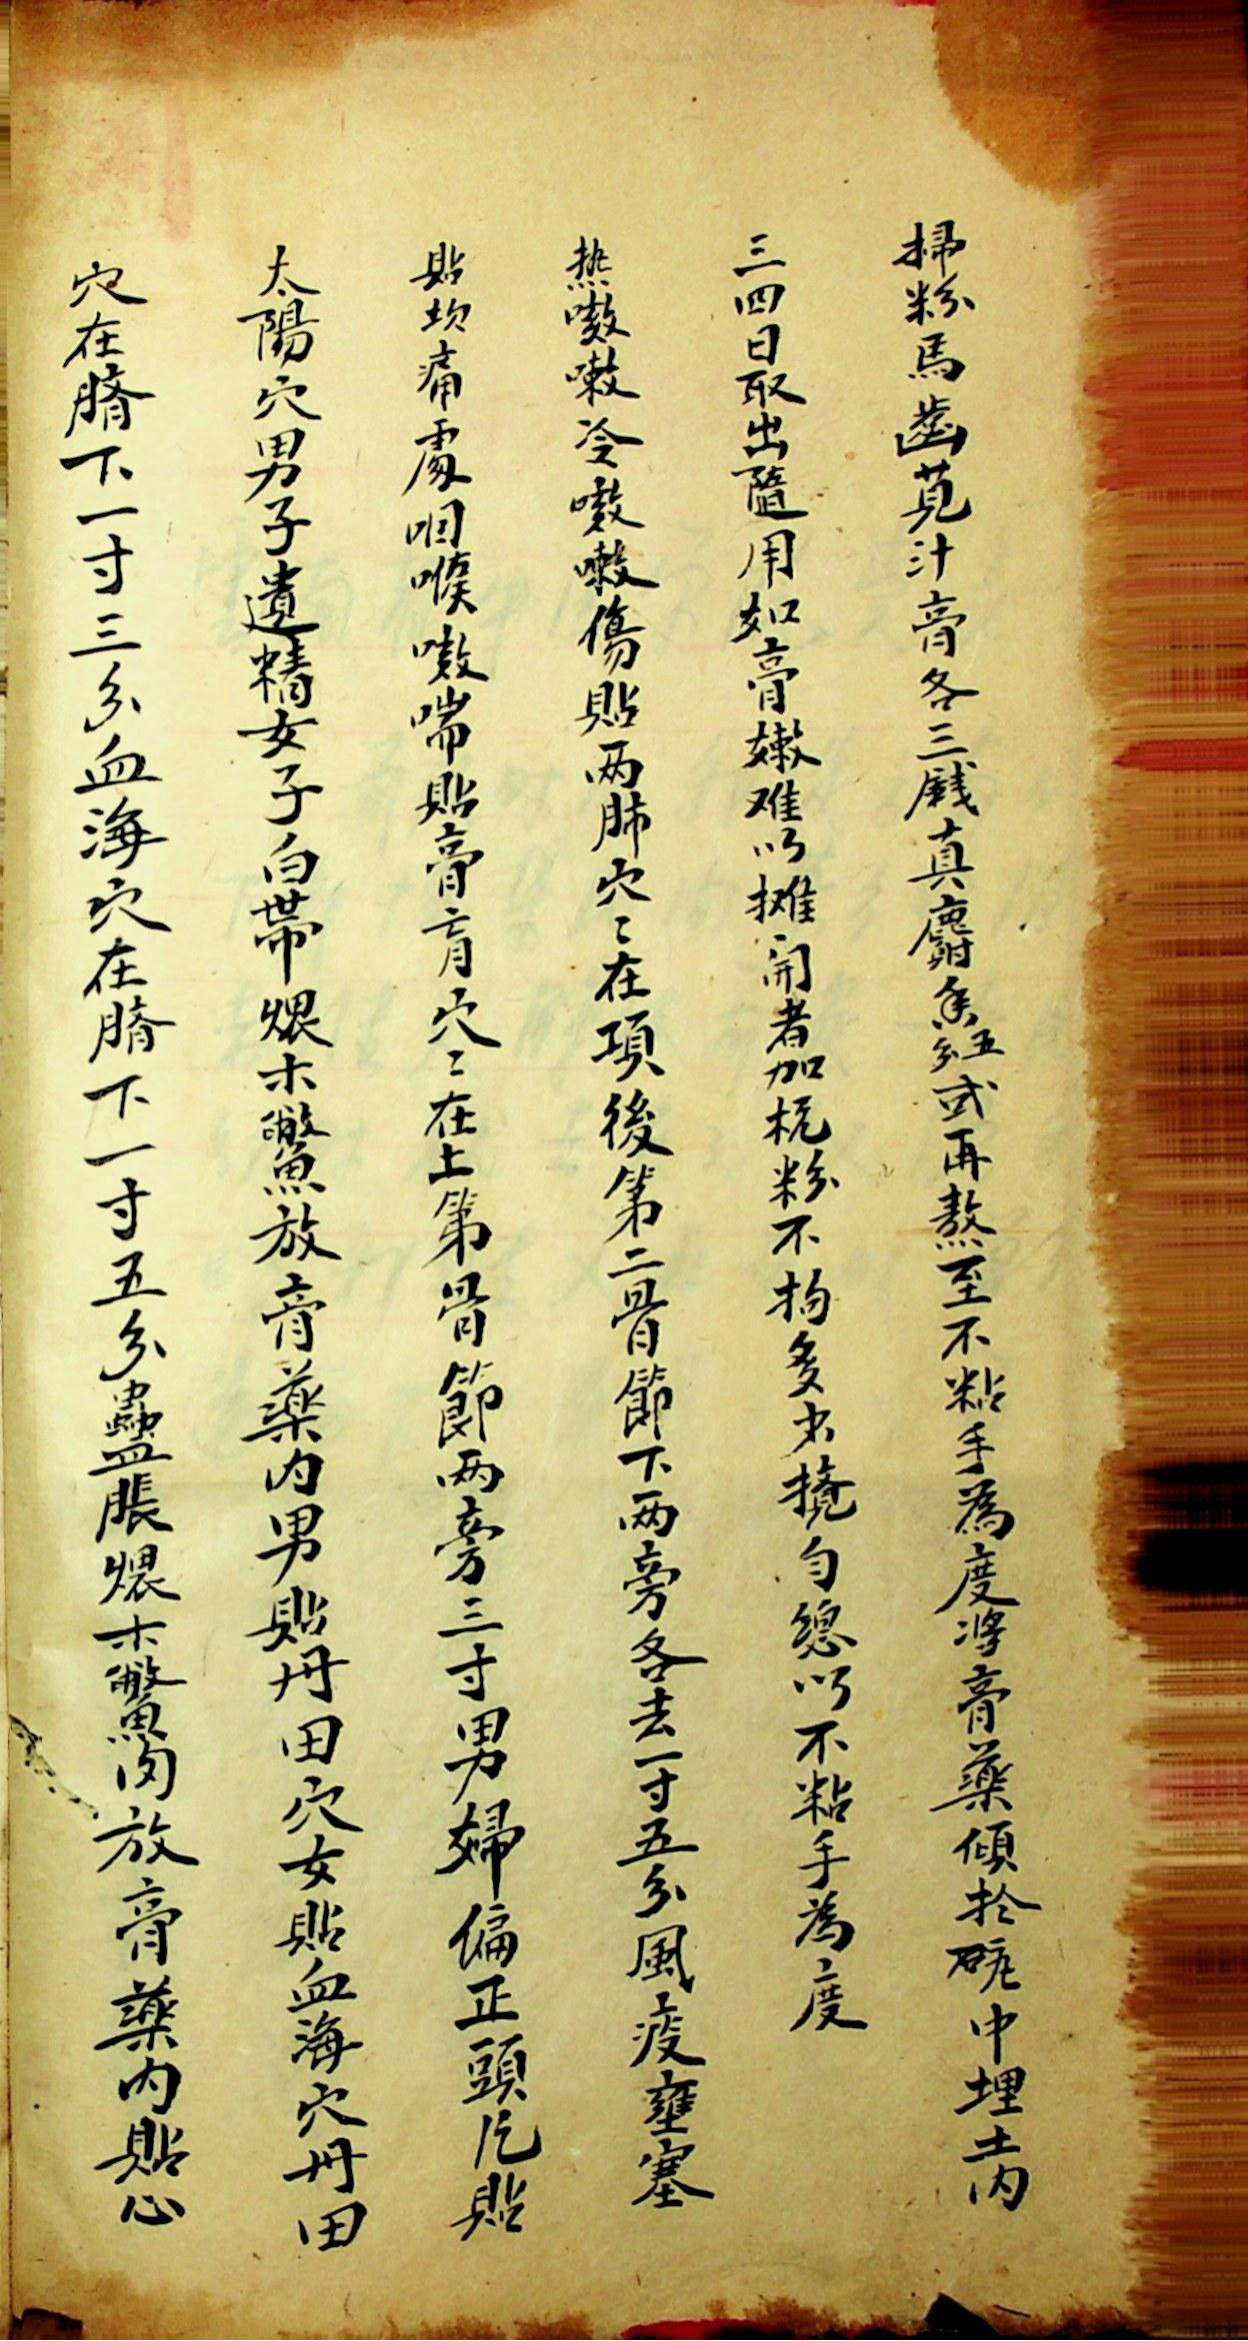 掃粉馬齒莧汁膏各三戔真麝香五分式再熬至不粘手為度將膏藥傾扵碗中埋土內
三四日取出隨用如膏嫩难以摊開者加杭粉不拘多少撓勻總以不粘手為度
热嗽嗽冷嗽嗽傷貼两肺穴〻在項後第二骨節下两旁各去一寸五分風痰壅塞
貼坎痛處咽喉嗽喘貼膏肓穴〻在上第骨節两旁三寸男婦偏正頭疼貼
太陽穴男子遺精女子白帶煨木鱉放膏藥內男貼丹田穴女貼血海穴丹田
穴在臍下一寸三分血海穴在臍下一寸五分蠱脹煨木鱉肉放膏藥內貼心